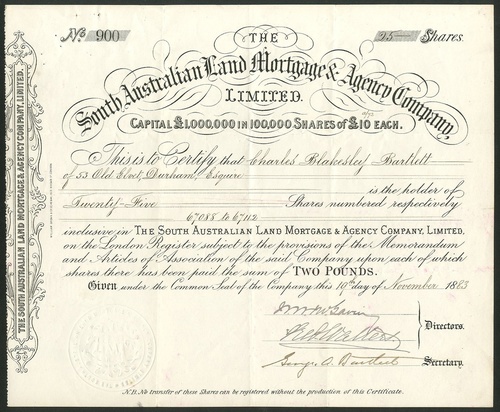 No. 900
25 Shares.
THE
South Australian Land Mortgage & Agency Company,
LIMITED.
CAPITAL £1,000,000 IN 100,000 SHARES OF £10 EACH.
This is to Certify that Charles Blakesley Bartlett
of 53 Old Elvet, Durham, Esquire
is the holder of
Twenty-Five Shares numbered respectively
67088 to 67112
inclusive in THE SOUTH AUSTRALIAN LAND MORTGAGE & AGENCY COMPANY, LIMITED,
on the London Register subject to the provisions of the Memorandum
and Articles of Association of the said Company upon each of which
shares there has been paid the sum of TWO POUNDS.
Given under the Common Seal of the Company this 19th day of November 1883
Directors.
George A. Bartlett
Secretary.
N.B. No transfer of these Shares can be registered without the production of this Certificate.
THE SOUTH AUSTRALIAN LAND MORTGAGE & AGENCY COMPANY, LIMITED.